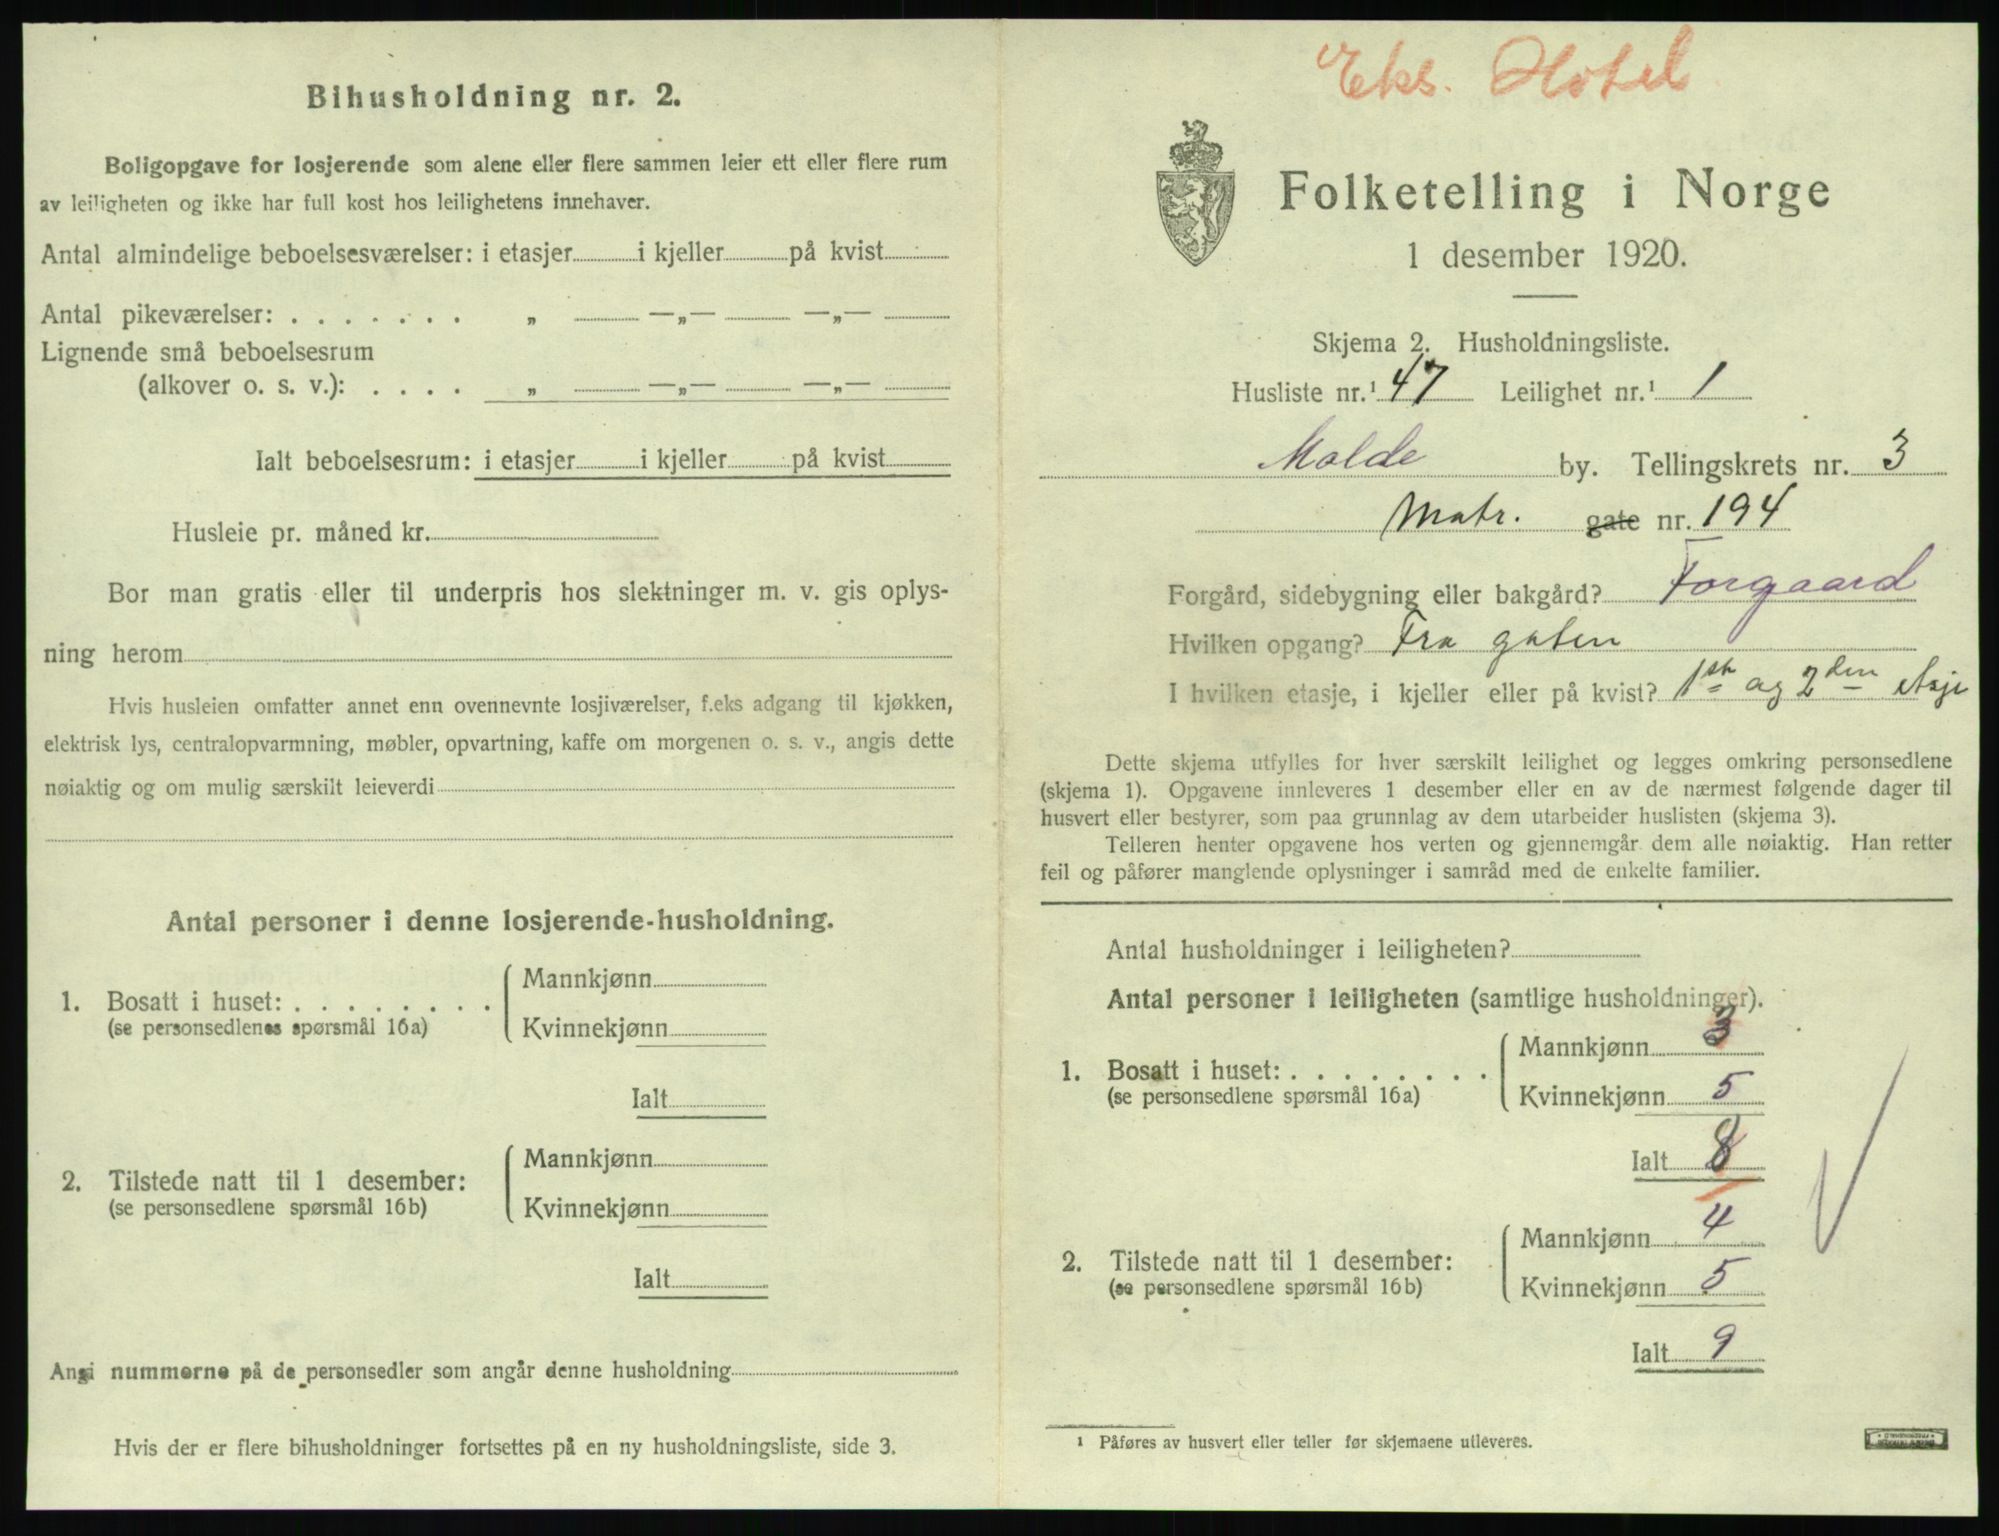 Bihusholdning nr. 2.
Boligopgave for losjerende som alene eller flere sammen leier ett eller flere rum
av leiligheten og ikke har full kost hos leilighetens innehaver.
Antal almindelige beboelsesværelser: i etasjer i kjeller på kvist
Antal pikeværelser: . . . . . . . „ —„— —„—
Lignende små beboelsesrum
(alkover o. s. v.): . . . . „ —„— —„—
Ialt beboelsesrum: i etasjer i kjeller på kvist
Husleie pr. måned kr.
Bor man gratis eller til underpris hos slektninger m. v. gis oplys-
ning herom
Hvis husleien omfatter annet enn ovennevnte losjiværelser, f.eks adgang til kjøkken,
elektrisk lys, centralopvarmning, møbler, opvartning, kaffe om morgenen o. s. v., angis dette
nøiaktig og om mulig særskilt leieverdi
Antal personer i denne losjerende-husholdning.
1. Bosatt i huset: . . . . . . . . Mannkjønn
(se personsedlenes spørsmål 16a) Kvinnekjønn
Ialt
2. Tilstede natt til 1 desember: Mannkjønn
(se personsedlene spørsmål 16b) Kvinnekjønn
Ialt
Angi nummerne på de personsedler som angår denne husholdning
Hvis der er flere bihusholdninger fortsettes på en ny husholdningsliste, side 3.
Eks. Hotel
Folketelling i Norge
1 desember 1920.
Skjema 2. Husholdningsliste.
Husliste nr.¹ 47 Leilighet nr.¹ 1
Molde by. Tellingskrets nr. 3
Matr. gate nr. 194
Forgård, sidebygning eller bakgård? Forgaard
Hvilken opgang? Fra gaten
I hvilken etasje, i kjeller eller på kvist? 1ste og 2den
Dette skjema utfylles for hver særskilt leilighet og legges omkring personsedlene
(skjema 1). Opgavene innleveres 1 desember eller en av de nærmest følgende dager til
husvert eller bestyrer, som paa grunnlag av dem utarbeider huslisten (skjema 3).
Telleren henter opgavene hos verten og gjennemgår dem alle nøiaktig. Han retter
feil og påfører manglende oplysninger i samråd med de enkelte familier.
Antal husholdninger i leiligheten?
Antal personer i leiligheten (samtlige husholdninger).
1. Bosatt i huset: . . . . . . . . Mannkjønn 3
(se personsedlene spørsmål 16a) Kvinnekjønn 5
Ialt 8
2. Tilstede natt til 1 desember: Mannkjønn 4
(se personsedlene spørsmål 16b) Kvinnekjønn 5
Ialt 9
¹ Påføres av husvert eller teller før skjemaene utleveres.